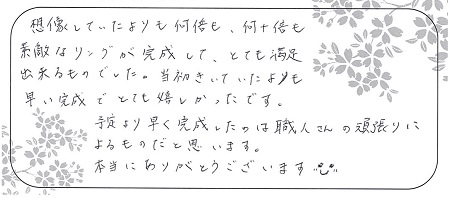 想像していたよりも何倍も、何十倍も
素敵なリングが完成して、とても満足
出来るものでした。当初きいていたよりも
早い完成でとても嬉しかったです。
予定より早く完成したのは職人さんの頑張りに
よるものだと思います。
本当にありがとうございます